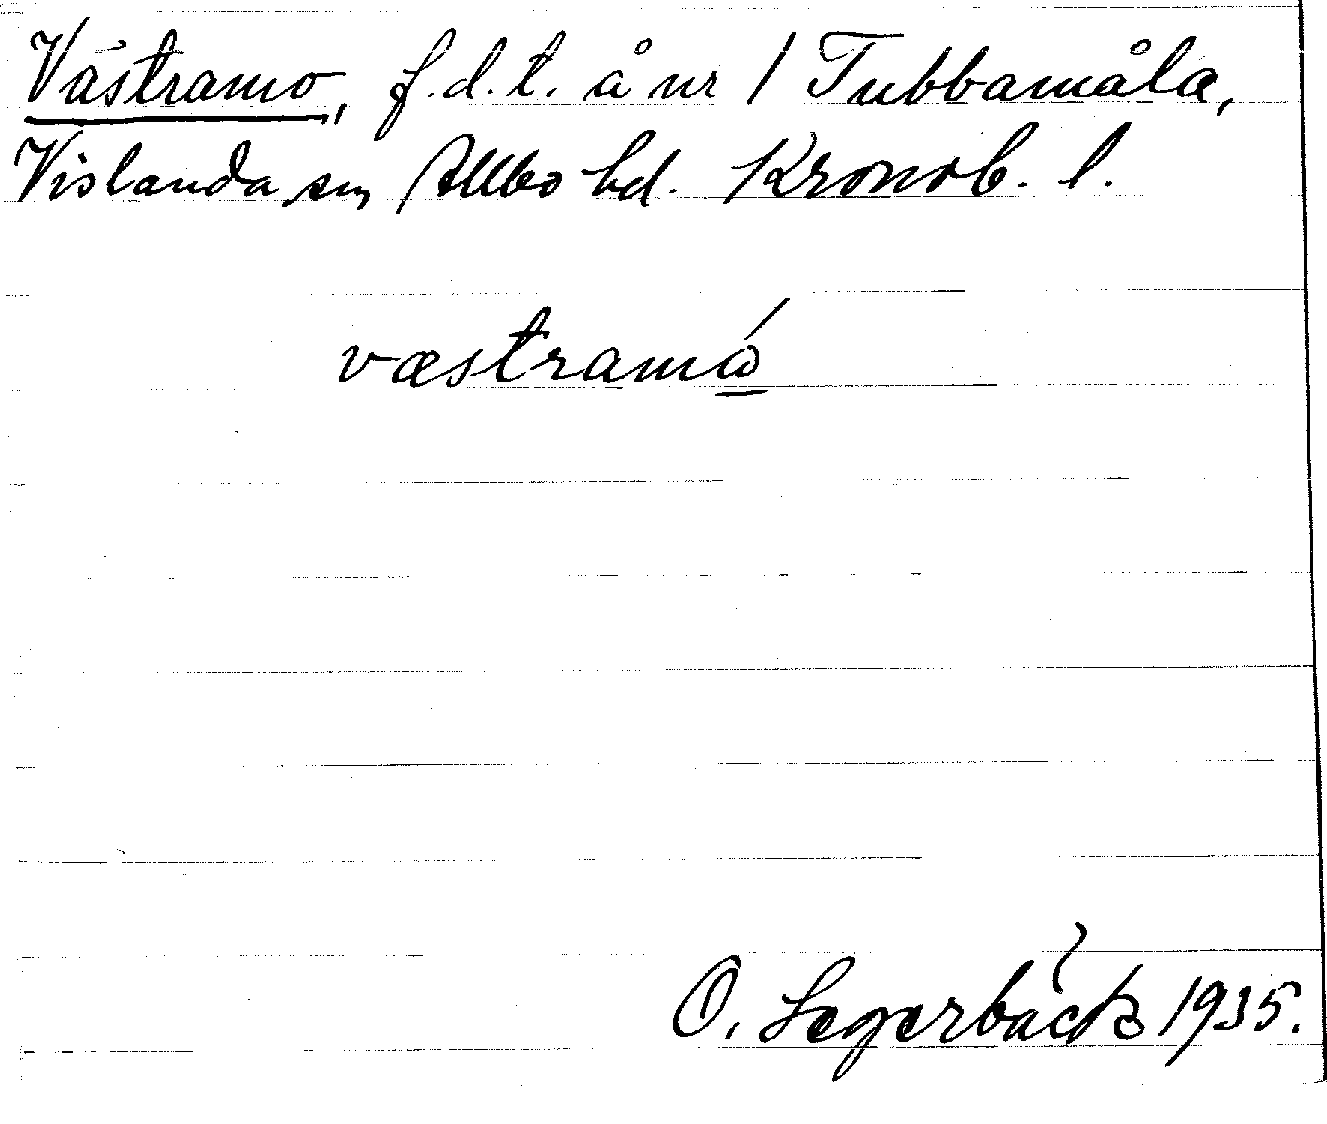 Västramo, f.d.t. å nr 1 Tubbamåla,
Vislanda sn, Allbo hd. Kronob. l.
væstramώ
O. Segerbäck 1935.